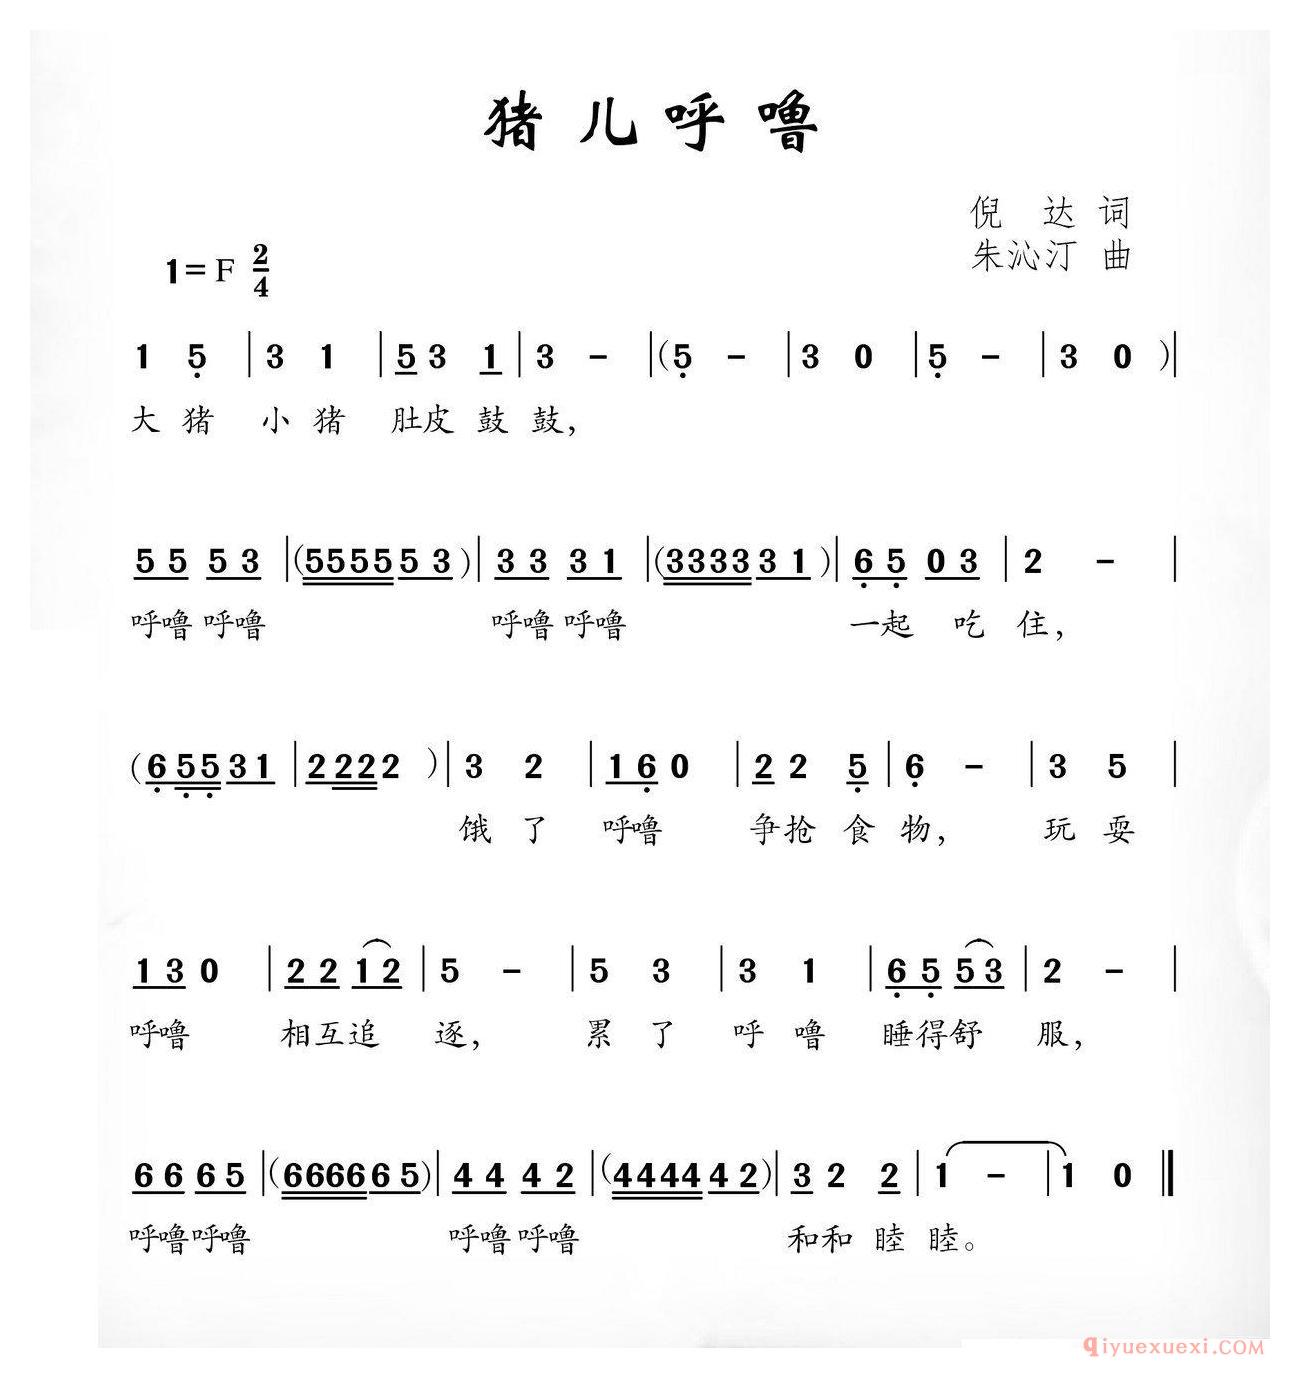 猪儿呼噜
倪 达 词
朱沁汀 曲
1=F 2/4
1 5 | 3 1 | 5 3 1 | 3 - | (5 - | 3 0 | 5 - | 3 0 ) |
大猪 小猪 肚皮鼓鼓,
5 5 5 3 | (5 5 5 5 5 3 ) | 3 3 3 1 | (3 3 3 3 3 1 ) | 6 5 0 3 | 2 - |
呼噜呼噜 呼噜呼噜 一起 吃 住,
(6 5 5 3 1 | 2 2 2 2 ) | 3 2 | 1 6 0 | 2 2 5 | 6 - | 3 5 |
饿了 呼噜 争抢食物, 玩耍
1 3 0 | 2 2 1 2 | 5 - | 5 3 | 3 1 | 6 5 5 3 | 2 - |
呼噜 相互追 逐, 累了 呼噜 睡得舒 服,
6 6 6 5 | (6 6 6 6 6 5) | 4 4 4 2 | (4 4 4 4 4 2 ) | 3 2 2 | 1 - | 1 0 ‖
呼噜呼噜 呼噜呼噜 和和睦睦。
qiyuexuexi.COM